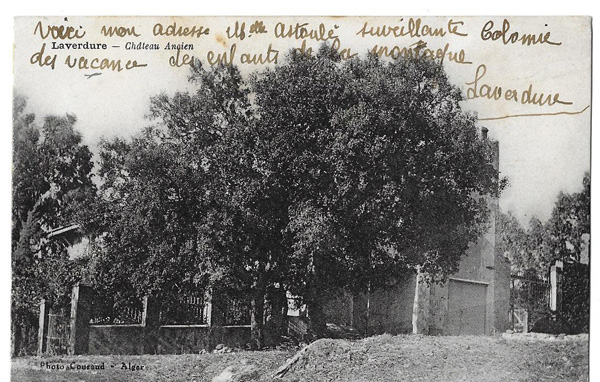 Voici mon adresse Melle Astoulé surveillante Colonie
Laverdure – Château Angien
des vacance des enfants de la montagne
Laverdure
Photo Couraud - Alger